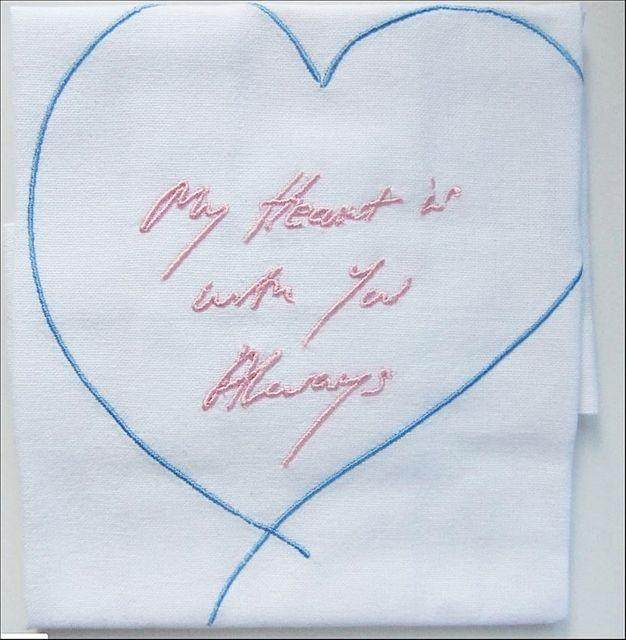 My Heart is
with You
Always